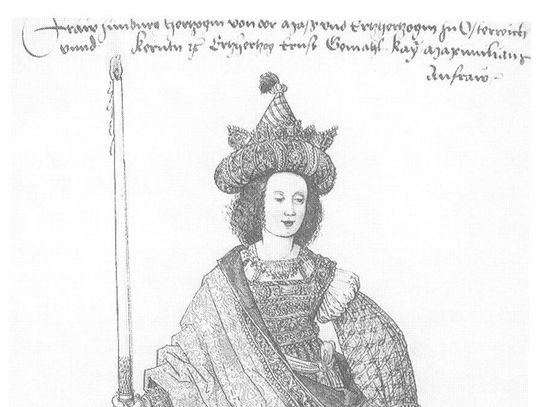 Fraw Zimburg Hertzogin von der Mass vnd Ertzhertzogin zu Osterreich
vnnd Kernten Ertzhertzog Ernst Gemahl Kay Maximilians
Anfraw